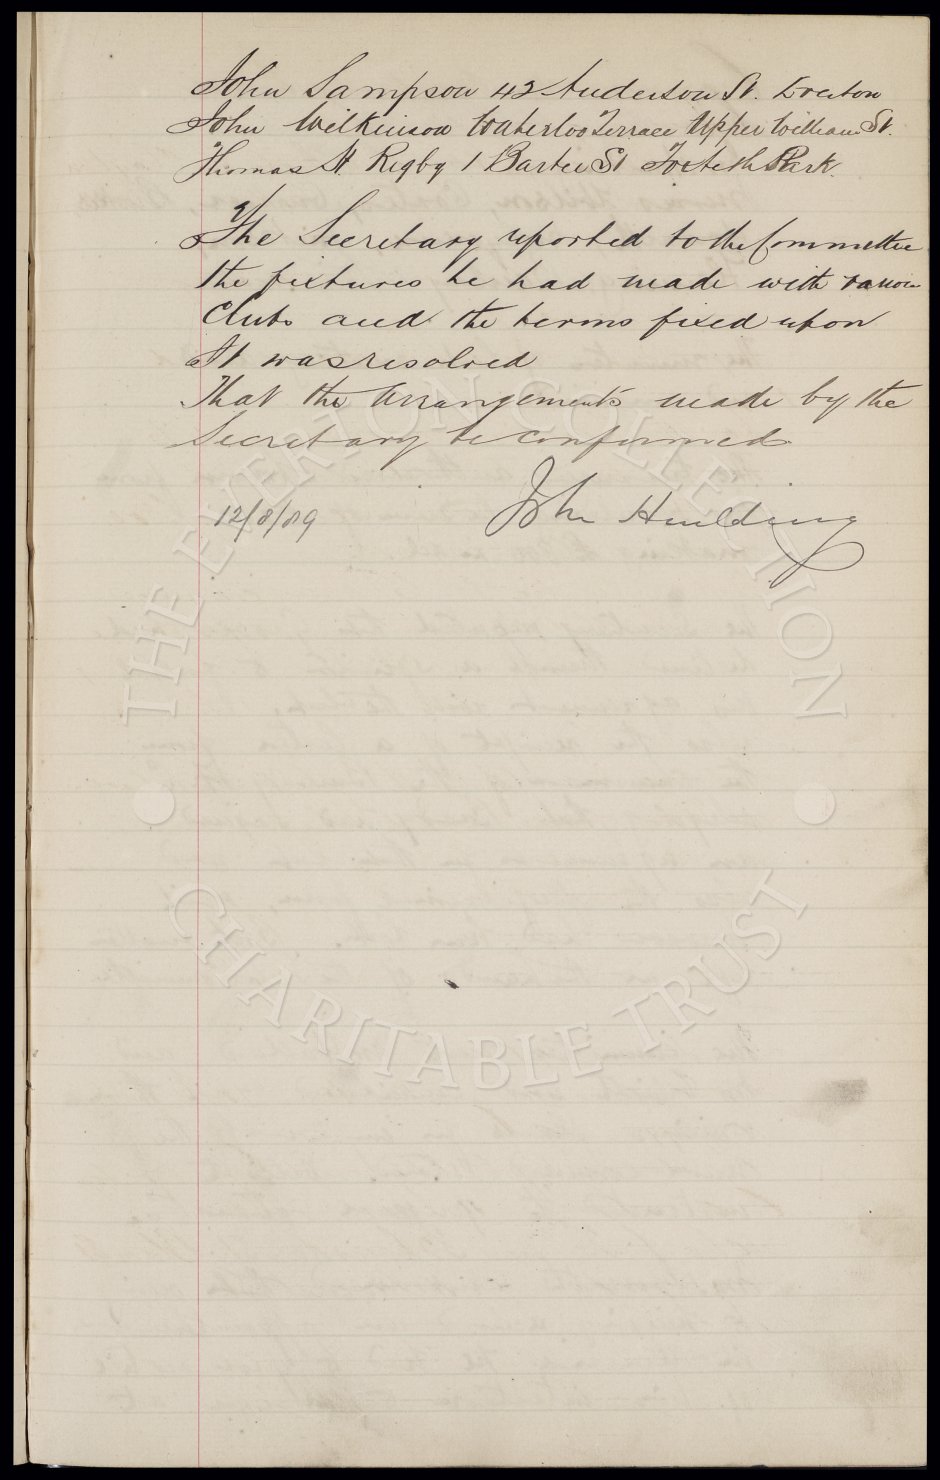 John Sampson 42 Anderson St. Everton
John Wilkinson Waterloo Terrace Upper William St.
Thomas H Rigby 1 Barter St Toxteth Park.
The Secretary reported to the Committee
the fixtures he had made with various
Clubs and the terms fixed upon
It was resolved
That the Arrangements made by the
Secretary be confirmed
12/8/89 John Houlding
THE EVERTON COLLECTION
CHARITABLE TRUST